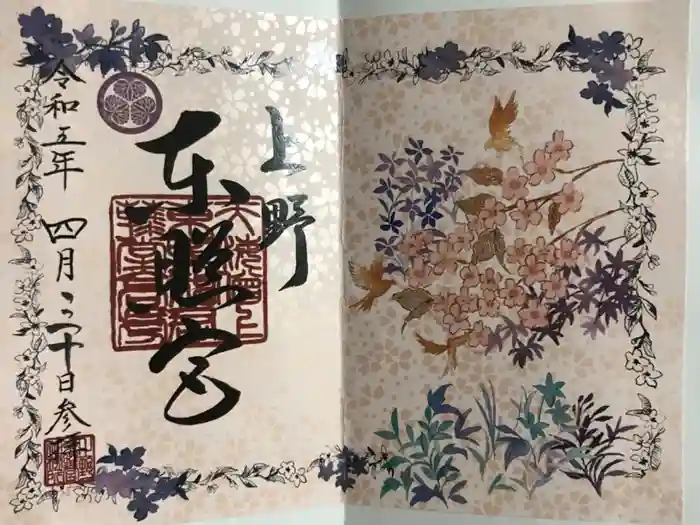 上野
東照宮
令和五年 四月二十日参拝